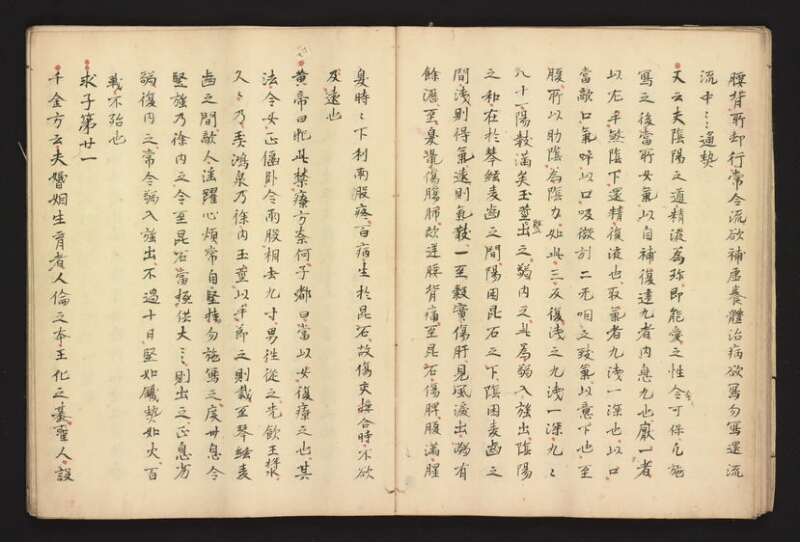 腰背所却行常令流欲補虛養體治病欲寫勿寫還流
流中ミミ通𤍠
又云夫陰陽之道精液為珍即能愛之性命可保凡施
寫之後當所女氣以自補復建九者內息九也厭一者
以左手煞陰下還精復液也取氣者九淺一深也以口
當敵口氣呼以口吸微引二无咽之致氣以意下也至
腹所以助陰為陰力如此三反復淺之九淺一深九〻
八十一陽數滿矣玉莖堅出之弱內之此為弱入強出陰陽
之和在於琴絃麦齒之間陽困昆石之下陰困麦齒之
間淺則得氣遠則氣散一至穀實傷肝見風淚出溺有
餘瀝至臭鼠傷腹肺欬逆腰背痛至昆石傷脾腹滿腥
臭時〻下利兩股疼百病生於昆石故傷交接合時不欲
及遠也
黃帝曰犯此禁療方奈何子都曰當以女復療之也其
法令女正偃卧令兩股相去九寸男往從之先飲玉漿
久〻乃弄鴻泉乃徐內玉莖以手節之則裁至琴絃麦
齒之間敵人淫躍心煩常自堅持勿施寫之度卅息令
堅強乃徐內之令至昆石當極供大ミミ則出之正息劣
弱復內之常令弱入強出不過十日堅如鐵𤍠如火百
戰不殆也
求子第廿一
千金方云夫婚姻生育者人倫之本王化之基聖人設